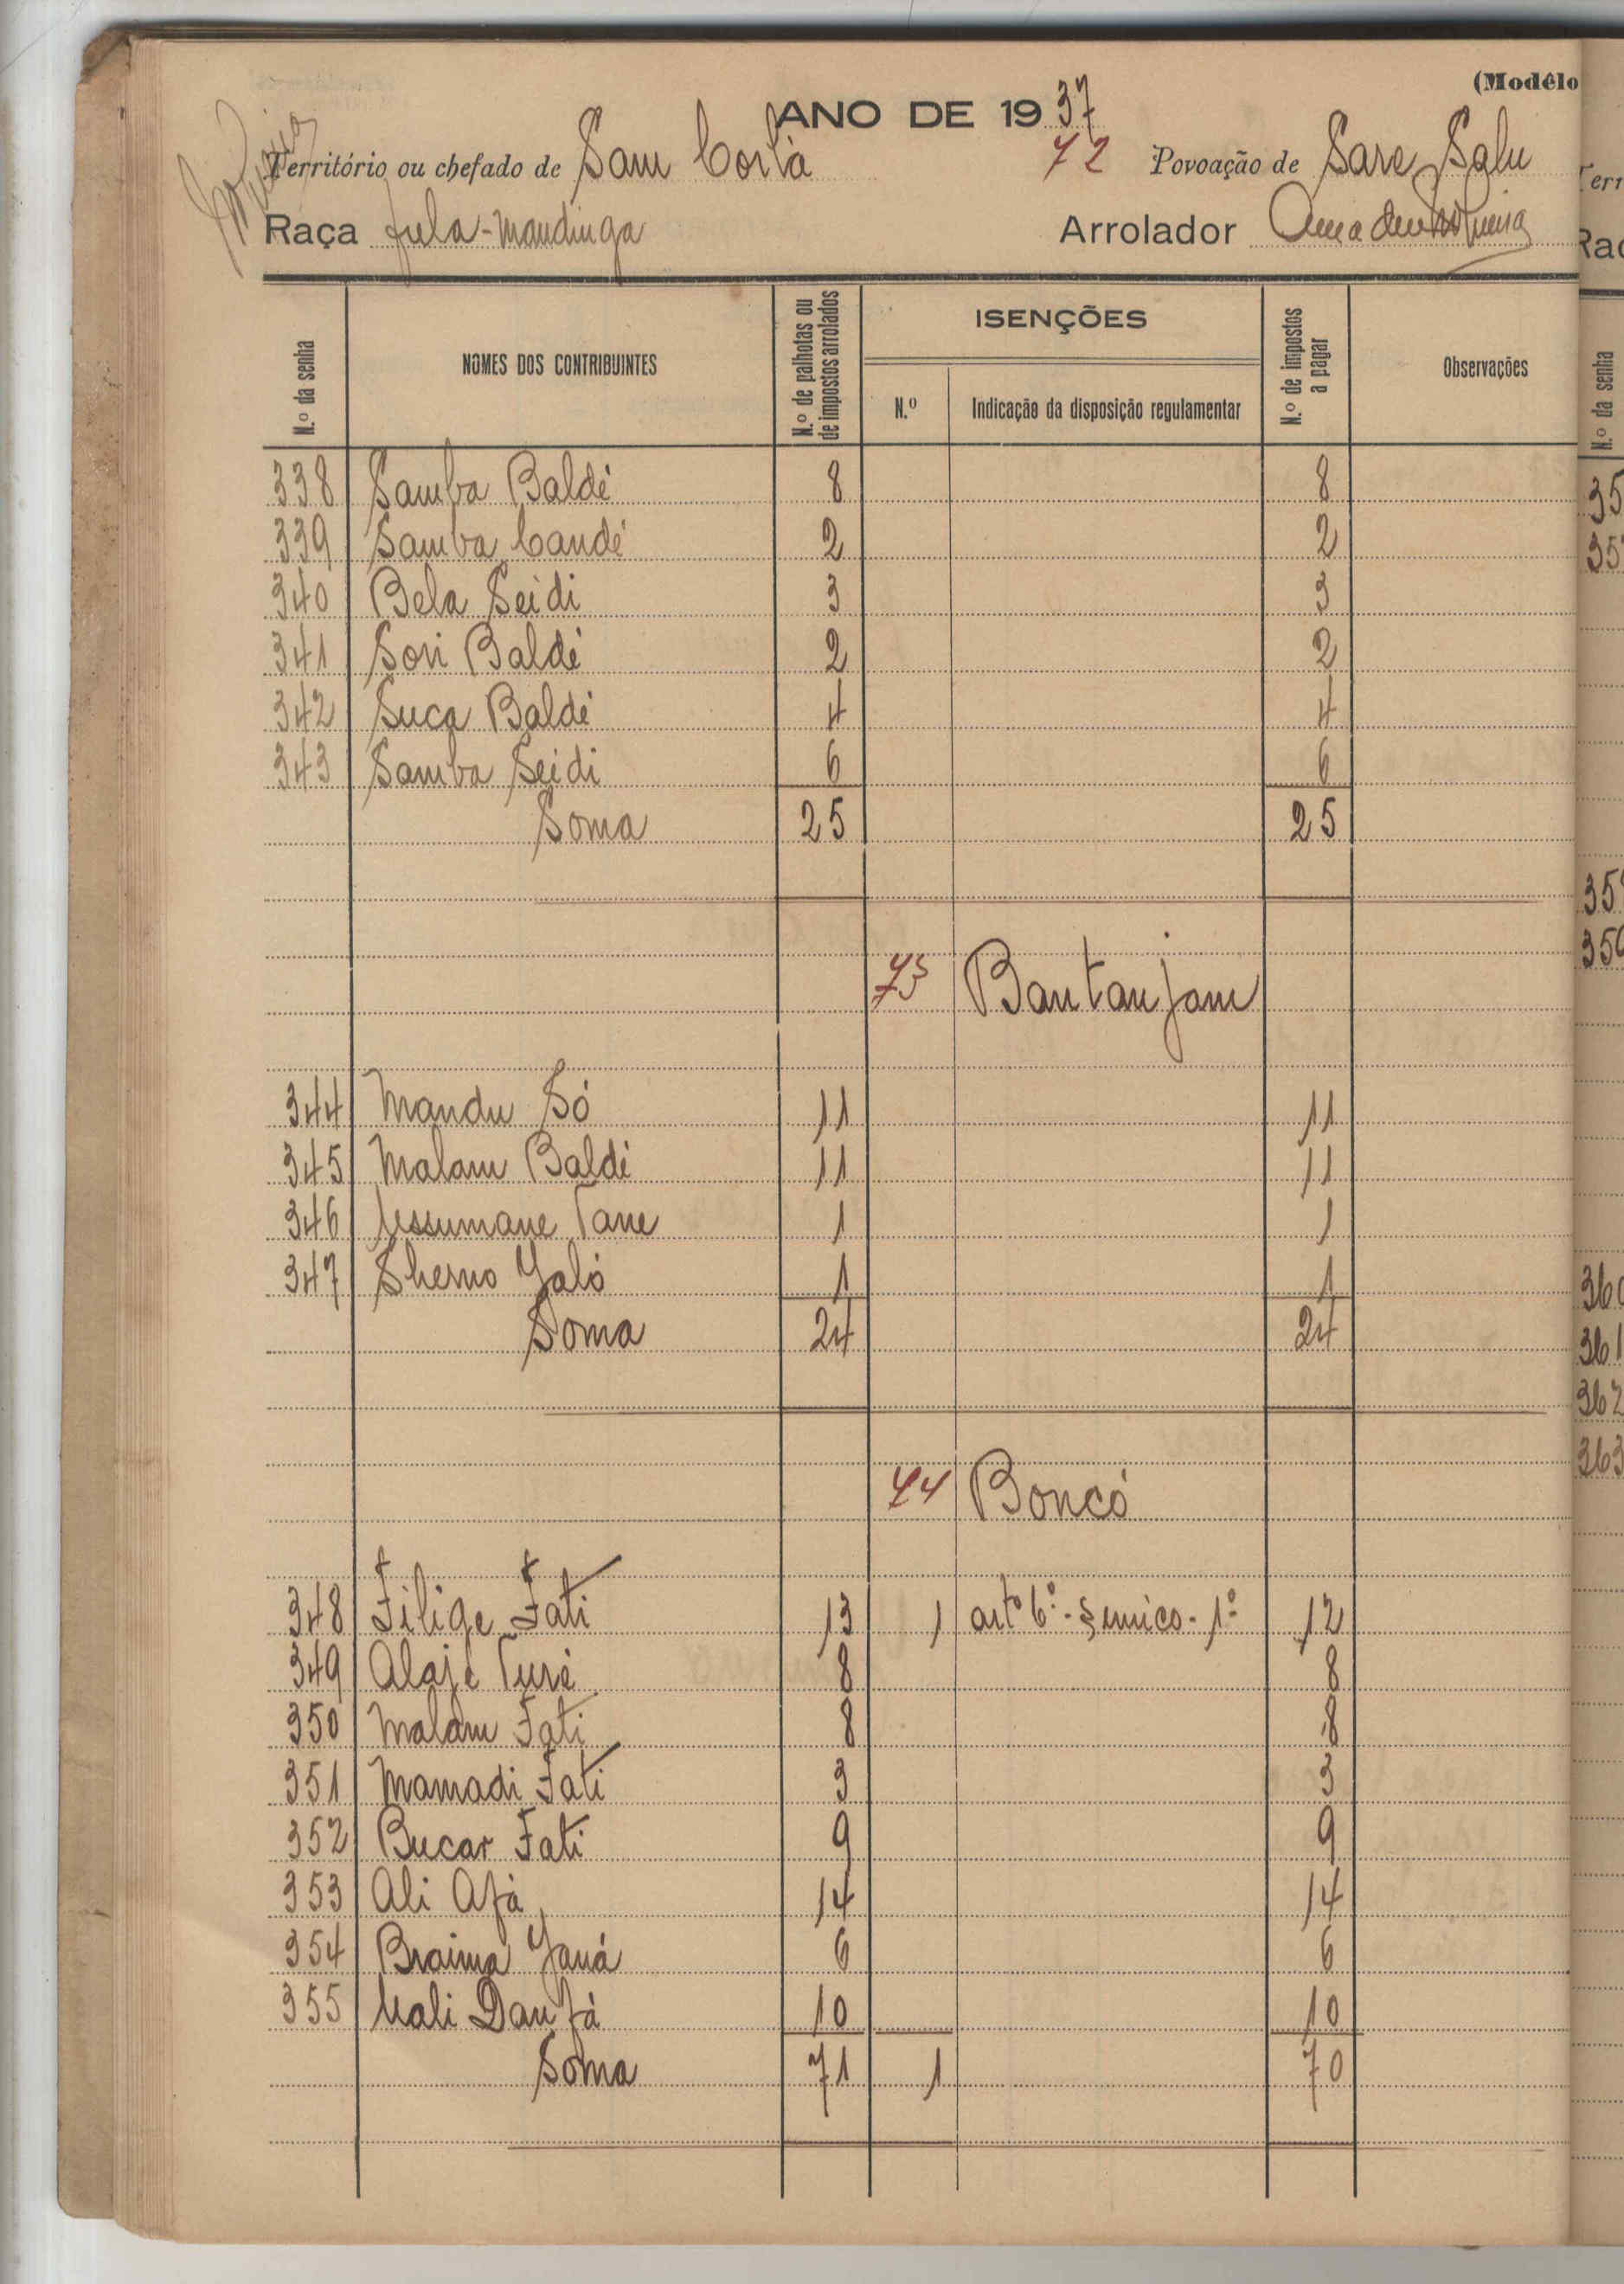 (Modêlo
ANO DE 1937
Território ou chefado de Sam Corlà 42 Povoação de Sare Salu
Raça fula-mandinga Arrolador
N.º da senha NOMES DOS CONTRIBUINTES N.º de palhotas ou de impostos arrolados ISENÇÕES N.º de impostos a pagar Observações
N.º Indicação da disposição regulamentar
338 Samba Baldé 8 8
339 Samba Candé 2 2
340 Bela Seidi 3 3
341 Sori Baldé 2 2
342 Suca Baldé 4 4
343 Samba Seidi 6 6
Soma 25 25
43 Bantanjam
344 Mandu Só 11 11
345 Malam Baldé 11 11
346 Ussumane Tane 1 1
347 Sherno Jaló 1 1
Soma 24 24
44 Boncó
348 Filige Fati 13 1 artº 6º-§ unico-1º 12
349 Alaje Turé 8 8
350 Malam Fati 8 8
351 Mamadi Fati 3 3
352 Bucar Fati 9 9
353 Ali Afá 14 14
354 Braima Janá 6 6
355 Mali Danfá 10 10
Soma 71 1 70
Terr
Raç
N.º da senha
35
35
35
360
361
362
363